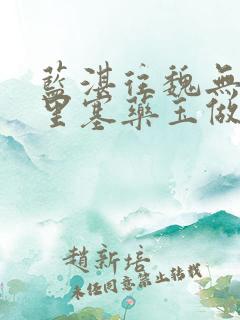 藍湛往魏無
里塞藥玉做
趙新培
未經同意禁止轉載